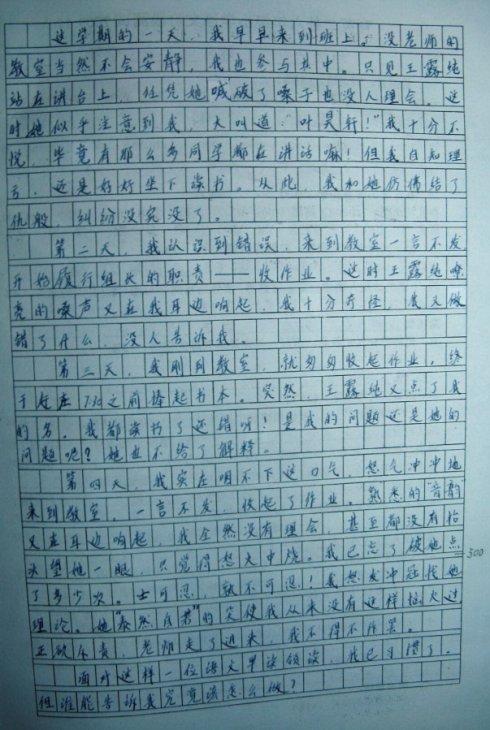 这学期的一天，我早早来到班上。没老师的
教室当然不会安静，我也参与其中。只见王露纯
站在讲台上，任凭她喊破了嗓子也没人理会。这
时她似乎注意到我，大叫道："叶昊轩！"我十分不
悦，毕竟有那么多同学都在讲话嘛！但我自知理
亏，还是好好坐下读书。从此，我和她仿佛结了
仇般，纠纷没完没了。
第二天，我认识到错误，来到教室一言不发，
开始履行组长的职责——收作业。这时王露纯嘹
亮的嗓声又在我耳边响起，我十分奇怪，我又做
错了什么，没人告诉我。
第三天，我刚到教室，就匆匆收起作业。终
于赶在7:20之前捧起书本。突然，王露纯又点了我
的名。我都读书了还错听！是我的问题还是她的
问题呢？她也不给了解释。
第四天，我实在咽不下这口气，怒气冲冲地
来到教室，一言不发，收起了作业。熟悉的"音韵"
又在耳边响起，我全然没有理会，甚至都没有抬
头望她一眼，只觉得怒火中烧。我已忘了被她点
了多少次。士可忍，孰不可忍！我怒发冲冠找她
理论。她"泰然自若"的笑使我从来没有这样恼火过
正欲斥责，老师走了进来，我不得不作罢。
面对这样一位语文早读领读，我已习惯了。
但谁能告诉我究竟该怎么做？
300